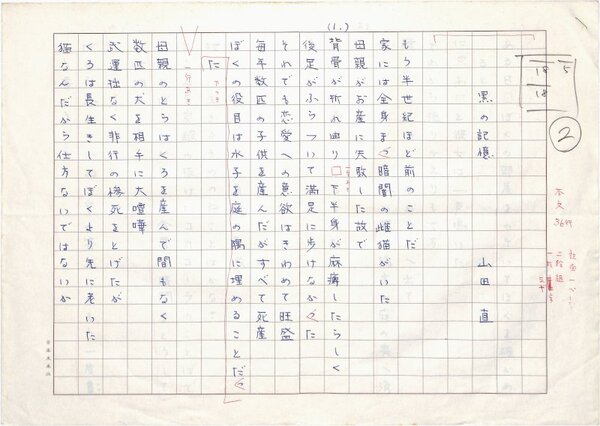 (1.)
5
18
18
②
本文
36行
二段組
黒の記憶
山田 直
もう半世紀ほど前のことだ
家には全身まっ暗闇の雌猫がいた
母親がお産に失敗した故で
背骨が折れ曲り 下半身が麻痺したらしく
後足がふらついて満足に歩けなかった
それでも恋愛への意欲はきわめて旺盛
毎年数匹の子供を産んだがすべて死産
ぼくの役目は水子を庭の隅に埋めることだっ
た
一行あき
母親のとらはくろを産んで間もなく
数匹の犬を相手に大喧嘩
武運拙なく非行の惨死をとげたが
くろは長生きしてぼくより先に老いた
猫なんだから仕方ないではないか